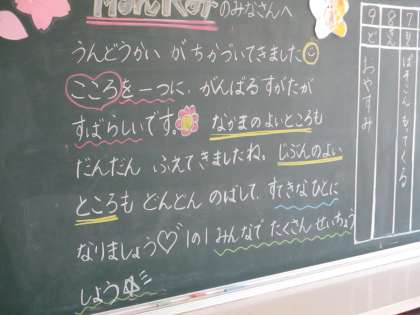 のみなさんへ
うんどうかい が ちかづいてきました
こころを一つに、がんばるすがたが
すばらしいです。 なかまのよいところも
だんだん ふえてきましたね。じぶんのよい
ところも どんどん のばして、すてきなひとに
なりましょう♡ 1の1 みんなで たくさん せいちょう
しょう
9 8
ど
おやすみ
もってくる